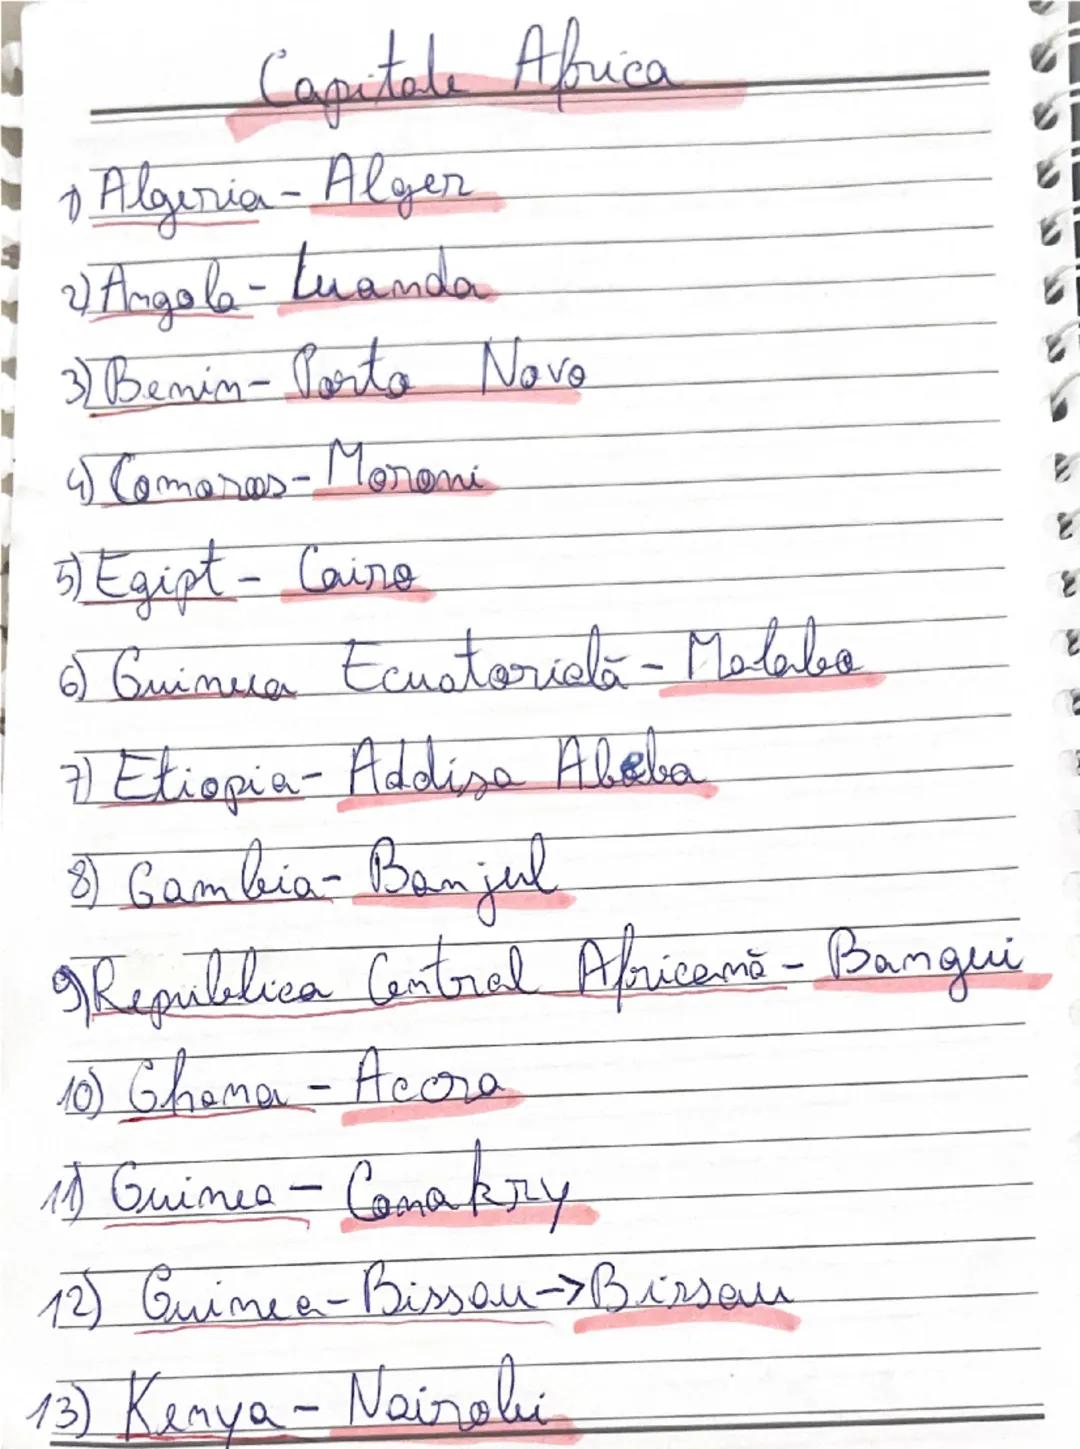 Capitale Africa
1) Algeria - Alger
2) Angola - Luanda
3) Benin - Porto Novo
4) Comoros - Moroni
5) Egipt - Cairo
6) Guineea Ecuatorială - Malabo
7) Etiopia - Addisa Abeba
8) Gambia - Banjul
9) Republica Central Africană - Bangui
10) Ghana - Accra
11) Guinea - Conakry
12) Guinea-Bissau -> Bissau
13) Kenya - Nairobi